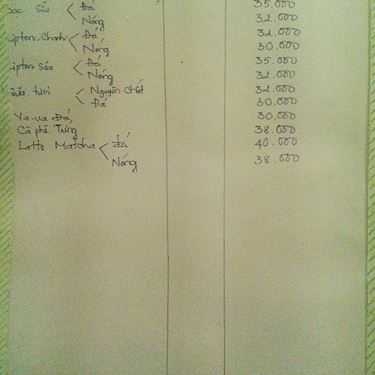 Sữa Đá 35.000
Nóng 32.000
ipton Chanh Đá 32.000
Nóng 30.000
ipton Sữa Đá 35.000
Nóng 32.000
tươi Nguyên Chất 32.000
Đá 30.000
Ya-ua Đá 30.000
Cà phê Trứng 38.000
Latte Matcha Đá 40.000
Nóng 38.000